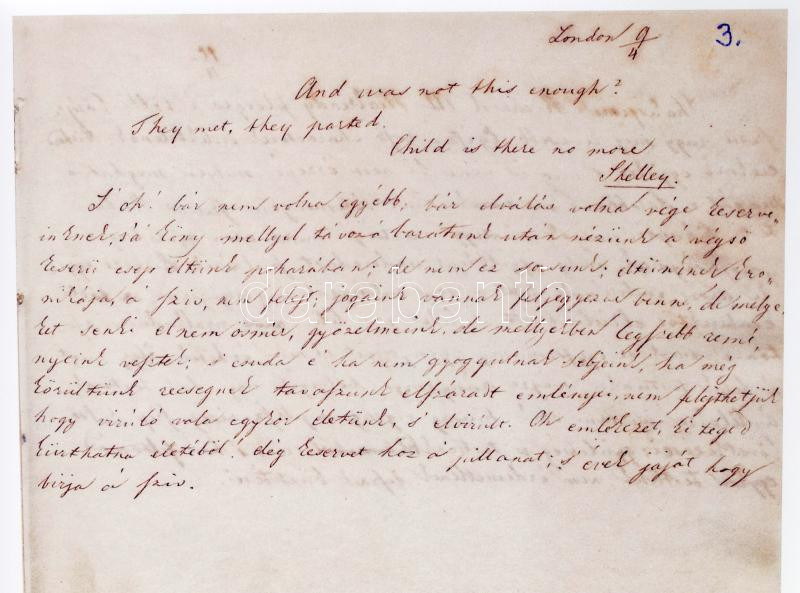 London 9/4
3.
And was not this enough?
They met, they parted.
Child is there no more
Shelley.
S oh! bár nem volna egyébb, bár elválás volna vége keserve-
inknek, s á köny mellyel távozó barátunk után nézünk á végső
keserü csep éltünk poharában; de nem ez sorsunk; éltünknek kro-
nikája, á szív, nem felejt; jogaink vannak feljegyezve benn, de melye-
ket senki el nem ösmér, győzelmeink, de mellyekben legszebb remé-
nyeink vesztek; s csuda é ha nem gyogyulnak sebjeink, ha még
körültünk recsegnek tavaszunk elszáradt emlényei, nem felejthetjük
hogy viruló vala egykor életünk, s elvirúlt. Oh emlékezet, ki téged
kiirthatna életéből. elég keservet hoz á pillanat; s évek jaját hogy
birja á szív.
darabanth